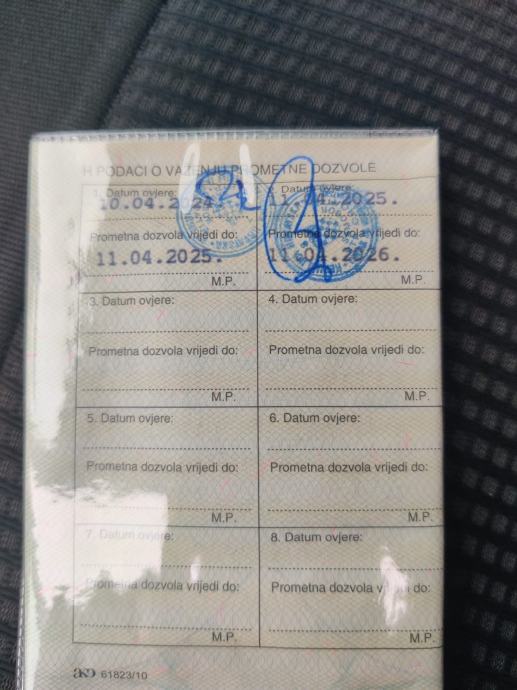 H PODACI O VAŽENJU PROMETNE DOZVOLE
1. Datum ovjere:
10.04.2024.
Prometna dozvola vrijedi do:
11.04.2025.
M.P.
2. Datum ovjere:
11.04.2025.
Prometna dozvola vrijedi do:
11.04.2026.
M.P.
3. Datum ovjere:
Prometna dozvola vrijedi do:
M.P.
4. Datum ovjere:
Prometna dozvola vrijedi do:
M.P.
5. Datum ovjere:
Prometna dozvola vrijedi do:
M.P.
6. Datum ovjere:
Prometna dozvola vrijedi do:
M.P.
7. Datum ovjere:
Prometna dozvola vrijedi do:
M.P.
8. Datum ovjere:
Prometna dozvola vrijedi do:
M.P.
akd 61823/10